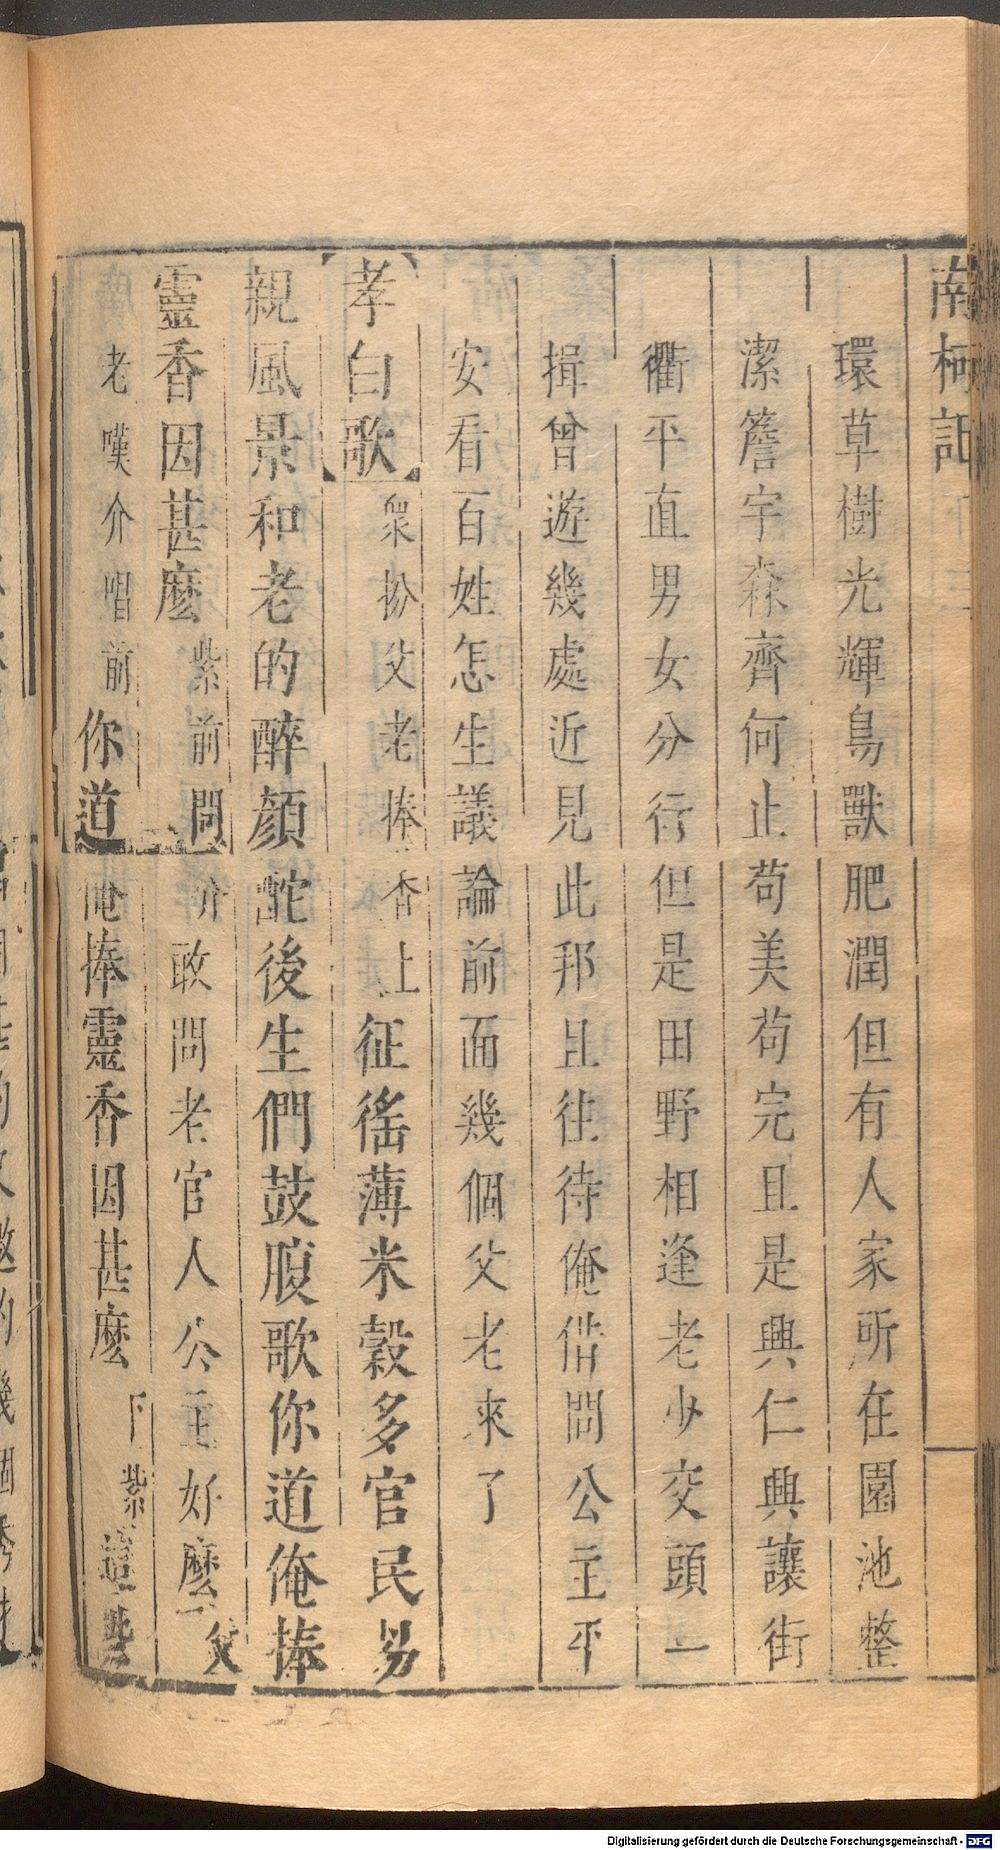 南柯記
環草樹光輝鳥獸肥潤但有人家所在園池整
潔簷宇森齊何止苟美苟完且是興仁興讓街
衢平直男女分行但是田野相逢老少交頭一
揖曾遊幾處近見此邦且往待俺借問公主平
安看百姓怎生議論前面幾個父老來了
孝白歌 衆扮父老捧香上 征徭薄米穀多官民易
親風景和老的醉顏酡後生們鼓腹歌你道俺捧
靈香因甚麼 紫前問介敢問老官人公主好麼父
老嘆介唱前 你道俺捧靈香因甚麼 下紫這些
Digitalisierung gefördert durch die Deutsche Forschungsgemeinschaft - DFG